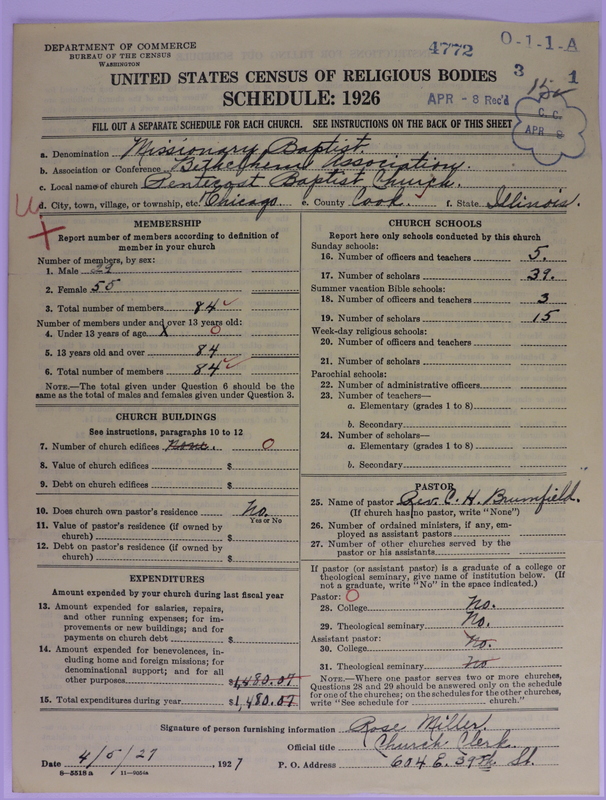 DEPARTMENT OF COMMERCE
BUREAU OF THE CENSUS
WASHINGTON
4772
O-1-1-A
3 1
UNITED STATES CENSUS OF RELIGIOUS BODIES
SCHEDULE: 1926
APR -8 Rec'd
C. C.
APR 8
FILL OUT A SEPARATE SCHEDULE FOR EACH CHURCH. SEE INSTRUCTIONS ON THE BACK OF THIS SHEET
a. Denomination Missionary Baptist.
b. Association or Conference Bethlehem Association.
c. Local name of church Pentecost Baptist Church.
d. City, town, village, or township, etc. Chicago. e. County Cook. f. State Illinois.
MEMBERSHIP
Report number of members according to definition of
member in your church
Number of members, by sex:
1. Male 29
2. Female 55
3. Total number of members 84
Number of members under and over 13 years old:
4. Under 13 years of age X 0
5. 13 years old and over 84
6. Total number of members 84
NOTE.—The total given under Question 6 should be the
same as the total of males and females given under Question 3.
CHURCH BUILDINGS
See instructions, paragraphs 10 to 12
7. Number of church edifices None. 0
8. Value of church edifices $
9. Debt on church edifices $
10. Does church own pastor's residence No.
Yes or No
11. Value of pastor's residence (if owned by
church) $
12. Debt on pastor's residence (if owned by
church) $
EXPENDITURES
Amount expended by your church during last fiscal year
13. Amount expended for salaries, repairs,
and other running expenses; for im-
provements or new buildings; and for
payments on church debt $
14. Amount expended for benevolences, in-
cluding home and foreign missions; for
denominational support; and for all
other purposes $1,480.07
15. Total expenditures during year $1,480.07
CHURCH SCHOOLS
Report here only schools conducted by this church
Sunday schools:
16. Number of officers and teachers 5.
17. Number of scholars 39.
Summer vacation Bible schools:
18. Number of officers and teachers 3
19. Number of scholars 15
Week-day religious schools:
20. Number of officers and teachers
21. Number of scholars
Parochial schools:
22. Number of administrative officers
23. Number of teachers—
a. Elementary (grades 1 to 8)
b. Secondary
24. Number of scholars—
a. Elementary (grades 1 to 8)
b. Secondary
PASTOR
25. Name of pastor Rev. C. H. Brumfield.
(If church has no pastor, write "None")
26. Number of ordained ministers, if any, em-
ployed as assistant pastors
27. Number of other churches served by the
pastor or his assistants
If pastor (or assistant pastor) is a graduate of a college or
theological seminary, give name of institution below. (If
not a graduate, write "No" in the space indicated.)
Pastor: 0
28. College No.
29. Theological seminary No.
Assistant pastor:
30. College No.
31. Theological seminary No
NOTE.—Where one pastor serves two or more churches,
Questions 28 and 29 should be answered only on the schedule
for one of the churches; on the schedules for the other churches,
write "See schedule for church."
Signature of person furnishing information Rose Miller
Official title Church Clerk.
Date 4/5/27, 1927 P. O. Address 604 E. 39th St.
8-5518 a 11-9054a